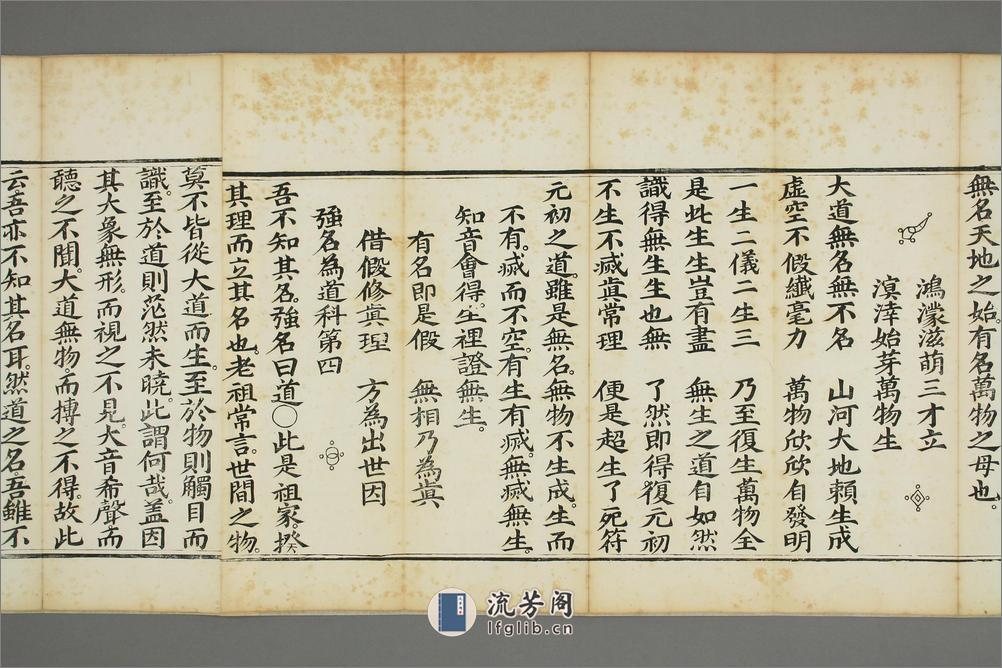 無名天地之始有名萬物之母也。
鴻濛滋萌三才立
溟涬始芽萬物生
大道無名無不名　山河大地賴生成
虛空不假纖毫力　萬物欣欣自發明
一生二儀二生三　乃至復生萬物全
是此生生豈有盡　無生之道自如然
識得無生生也無　了然即得復元初
不生不滅眞常理　便是超生了死符
元初之道。雖是無名。無物不生成。生而
不有。滅而不空。有生有滅。無滅無生。
知音會得。生裡證無生。
有名即是假　無相乃為眞
借假修眞理　方為出世因
強名為道科第四
吾不知其名。強名曰道〇此是祖家。揆
其理而立其名也。老祖常言。世間之物。
莫不皆從大道而生。至於物則觸目而
識。至於道則茫然未曉。此謂何哉。盖因
其大象無形。而視之不見。大音希聲。而
聽之不聞。大道無物。而搏之不得。故此
云。吾亦不知其名耳。然道之名。吾雖不
流芳阁
lfglib.cn